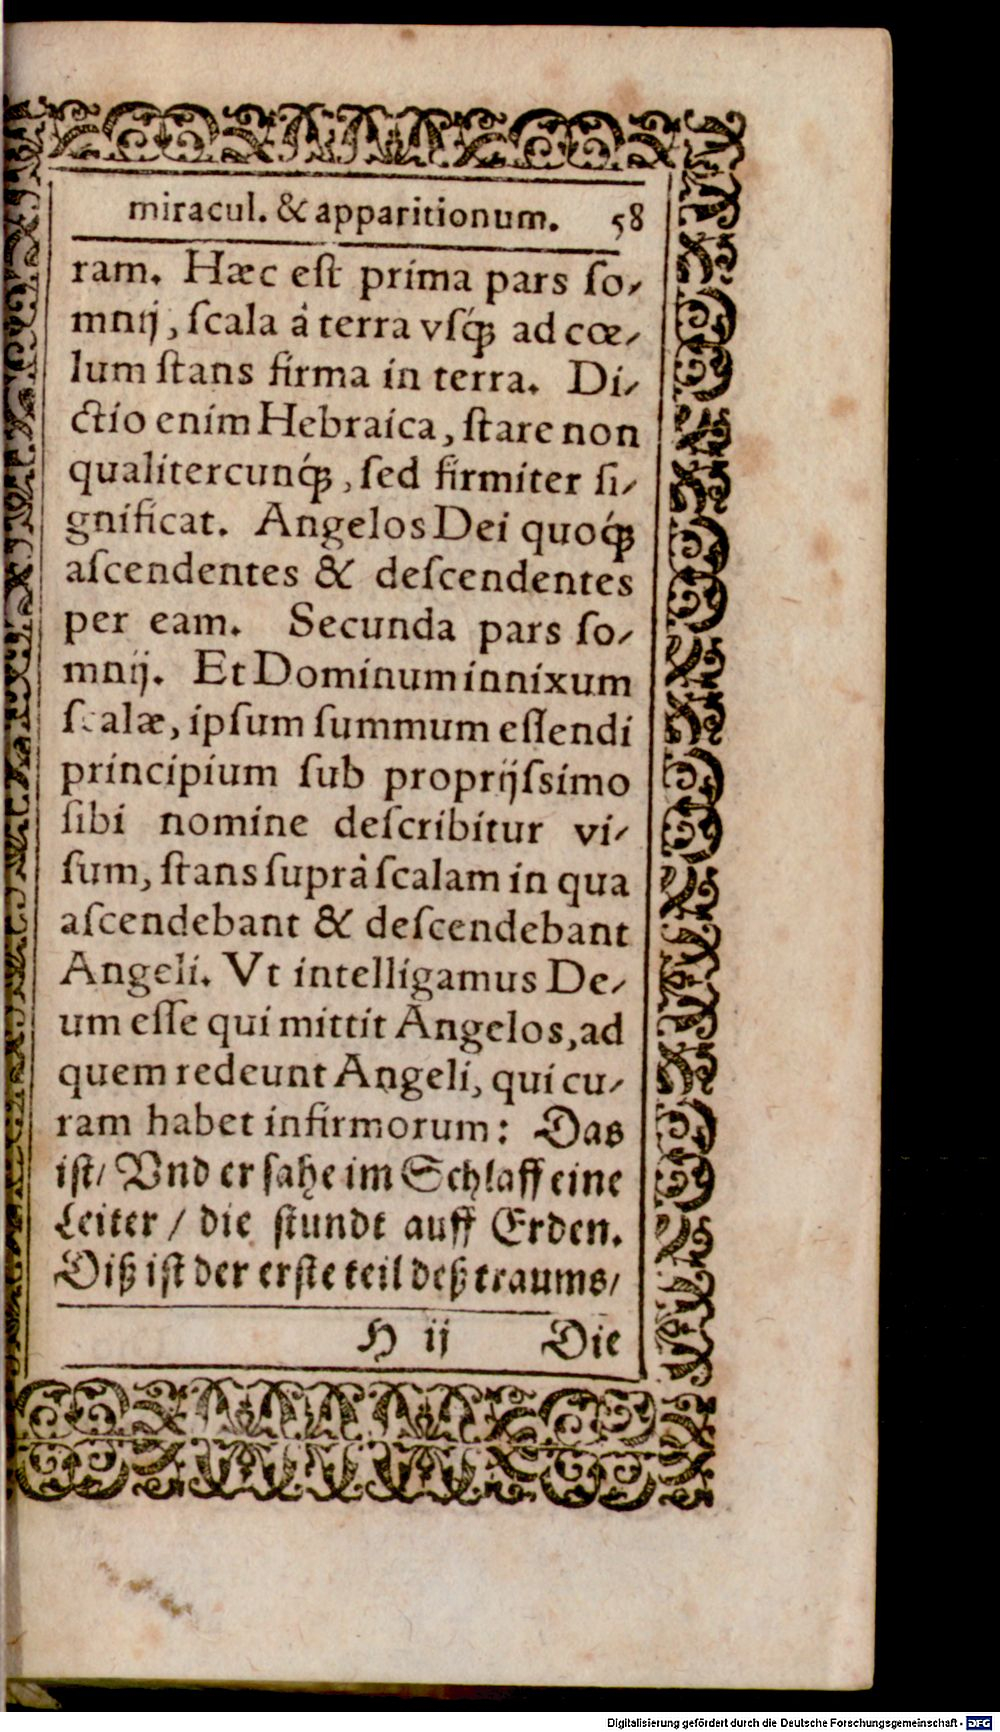 miracul. & apparitionum. 58
ram. Hæc eſt prima pars ſo-
mnij, ſcala à terra vſq́; ad cœ-
lum ſtans firma in terra. Di-
ctio enim Hebraica, ſtare non
qualitercunq́;, ſed firmiter ſi-
gnificat. Angelos Dei quoq́;
aſcendentes & deſcendentes
per eam. Secunda pars ſo-
mnij. Et Dominum innixum
ſcalæ, ipſum ſummum eſſendi
principium ſub proprijſsimo
ſibi nomine deſcribitur vi-
ſum, ſtans suprà ſcalam in qua
aſcendebant & deſcendebant
Angeli. Vt intelligamus De-
um eſſe qui mittit Angelos, ad
quem redeunt Angeli, qui cu-
ram habet infirmorum: Das
iſt/ Vnd er ſahe im Schlaff eine
Leiter / die ſtundt auff Erden.
Diß iſt der erſte teil deß traums/
H ij Die
Digitalisierung gefördert durch die Deutsche Forschungsgemeinschaft - DFG